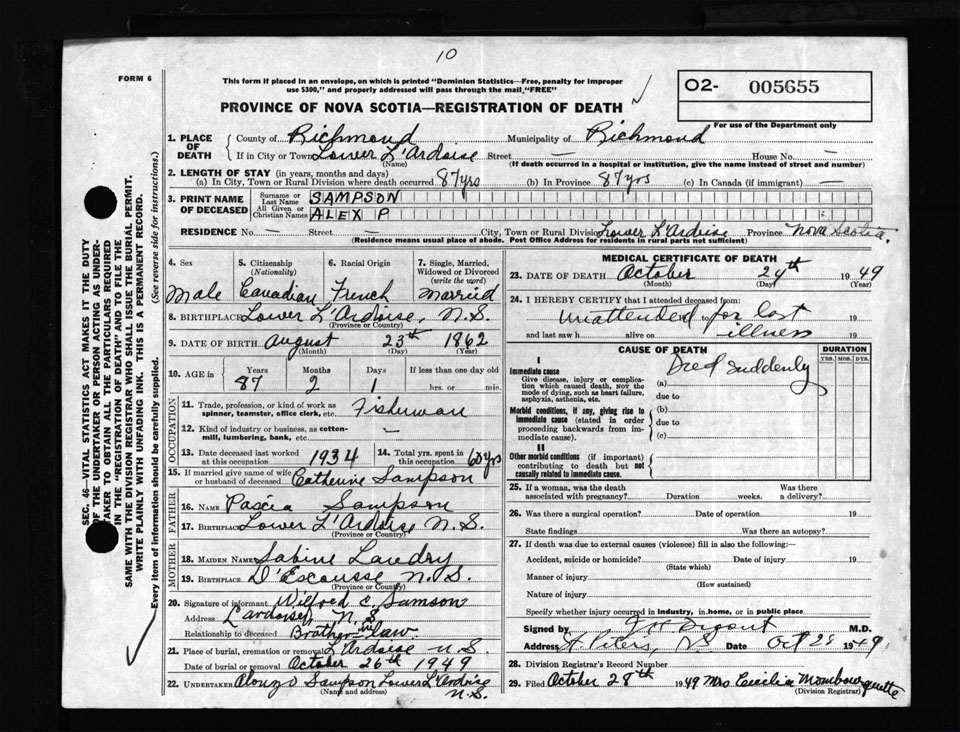 10
FORM 6
This form if placed in an envelope, on which is printed "Dominion Statistics—Free, penalty for improper
use $300," and properly addressed will pass through the mail "FREE"
PROVINCE OF NOVA SCOTIA—REGISTRATION OF DEATH
O2- 005655
For use of the Department only
SEC. 46—VITAL STATISTICS ACT MAKES IT THE DUTY
OF THE UNDERTAKER OR PERSON ACTING AS UNDER-
TAKER TO OBTAIN ALL THE PARTICULARS REQUIRED
IN THE "REGISTRATION OF DEATH" AND TO FILE THE
SAME WITH THE DIVISION REGISTRAR WHO SHALL ISSUE THE BURIAL PERMIT.
WRITE PLAINLY WITH UNFADING INK. THIS IS A PERMANENT RECORD.
Every item of information should be carefully supplied. (See reverse side for instructions.)
1. PLACE OF DEATH County of Richmond Municipality of Richmond
If in City or Town Lower L'Ardoise Street — House No. —
(Name) (If death occurred in a hospital or institution, give the name instead of street and number)
2. LENGTH OF STAY (in years, months and days)
(a) In City, Town or Rural Division where death occurred 87 yrs (b) In Province 87 yrs (c) In Canada (if immigrant) —
3. PRINT NAME OF DECEASED Surname or Last Name SAMPSON
All Given or Christian Names ALEX P
RESIDENCE No. — Street — City, Town or Rural Division Lower L'Ardoise Province Nova Scotia.
(Residence means usual place of abode. Post Office Address for residents in rural parts not sufficient)
4. Sex 5. Citizenship (Nationality) 6. Racial Origin 7. Single, Married, Widowed or Divorced (write the word)
Male Canadian French Married
8. BIRTHPLACE Lower L'Ardoise, N.S.
(Province or Country)
9. DATE OF BIRTH August 23th 1862
(Month) (Day) (Year)
10. AGE in Years Months Days If less than one day old
87 2 1 hrs. or min.
OCCUPATION
11. Trade, profession, or kind of work as
spinner, teamster, office clerk, etc. Fisherman
12. Kind of industry or business, as cotton-
mill, lumbering, bank, etc. —
13. Date deceased last worked at this occupation 1934 14. Total yrs. spent in this occupation 60 yrs
15. If married give name of wife or husband of deceased Catherine Sampson
FATHER
16. NAME Sampson
17. BIRTHPLACE Lower L'Ardoise N.S.
(Province or Country)
MOTHER
18. MAIDEN NAME Sabine Landry
19. BIRTHPLACE D'Escousse N.S.
(Province or Country)
20. Signature of informant Wilfred C. Samson
Address L'ardoise, N.S.
Relationship to deceased Brother in law
21. Place of burial, cremation or removal L'Ardoise N.S.
Date of burial or removal October 26th 1949
22. UNDERTAKER Alonzo Sampson Lower L'Ardoise
(Name and address) N.S.
MEDICAL CERTIFICATE OF DEATH
23. DATE OF DEATH October 24th 1949
(Month) (Day) (Year)
24. I HEREBY CERTIFY that I attended deceased from:
Unattended for last 19
and last saw h alive on illness 19
CAUSE OF DEATH DURATION
YRS. MOS. DYS.
I
Immediate cause
Give disease, injury or complica-
tion which caused death, not the
mode of dying, such as heart failure,
asphyxia, asthenia, etc.
(a) Died Suddenly
due to
Morbid conditions, if any, giving rise to
immediate cause (stated in order
proceeding backwards from im-
mediate cause).
(b)
due to
(c)
II
Other morbid conditions (if important)
contributing to death but not
causally related to immediate cause.
25. If a woman, was the death Was there
associated with pregnancy? Duration weeks. a delivery?
26. Was there a surgical operation? Date of operation 19
State findings Was there an autopsy?
27. If death was due to external causes (violence) fill in also the following:—
Accident, suicide or homicide? Date of injury 19
(State which)
Manner of injury
(How sustained)
Nature of injury
Specify whether injury occurred in Industry, in home, or in public place
Signed by Digout M.D.
Address St. Peters, N.S. Date Oct 28 1949
28. Division Registrar's Record Number
29. Filed October 28th 1949 Mrs Cecilia Mombourquette
(Division Registrar)